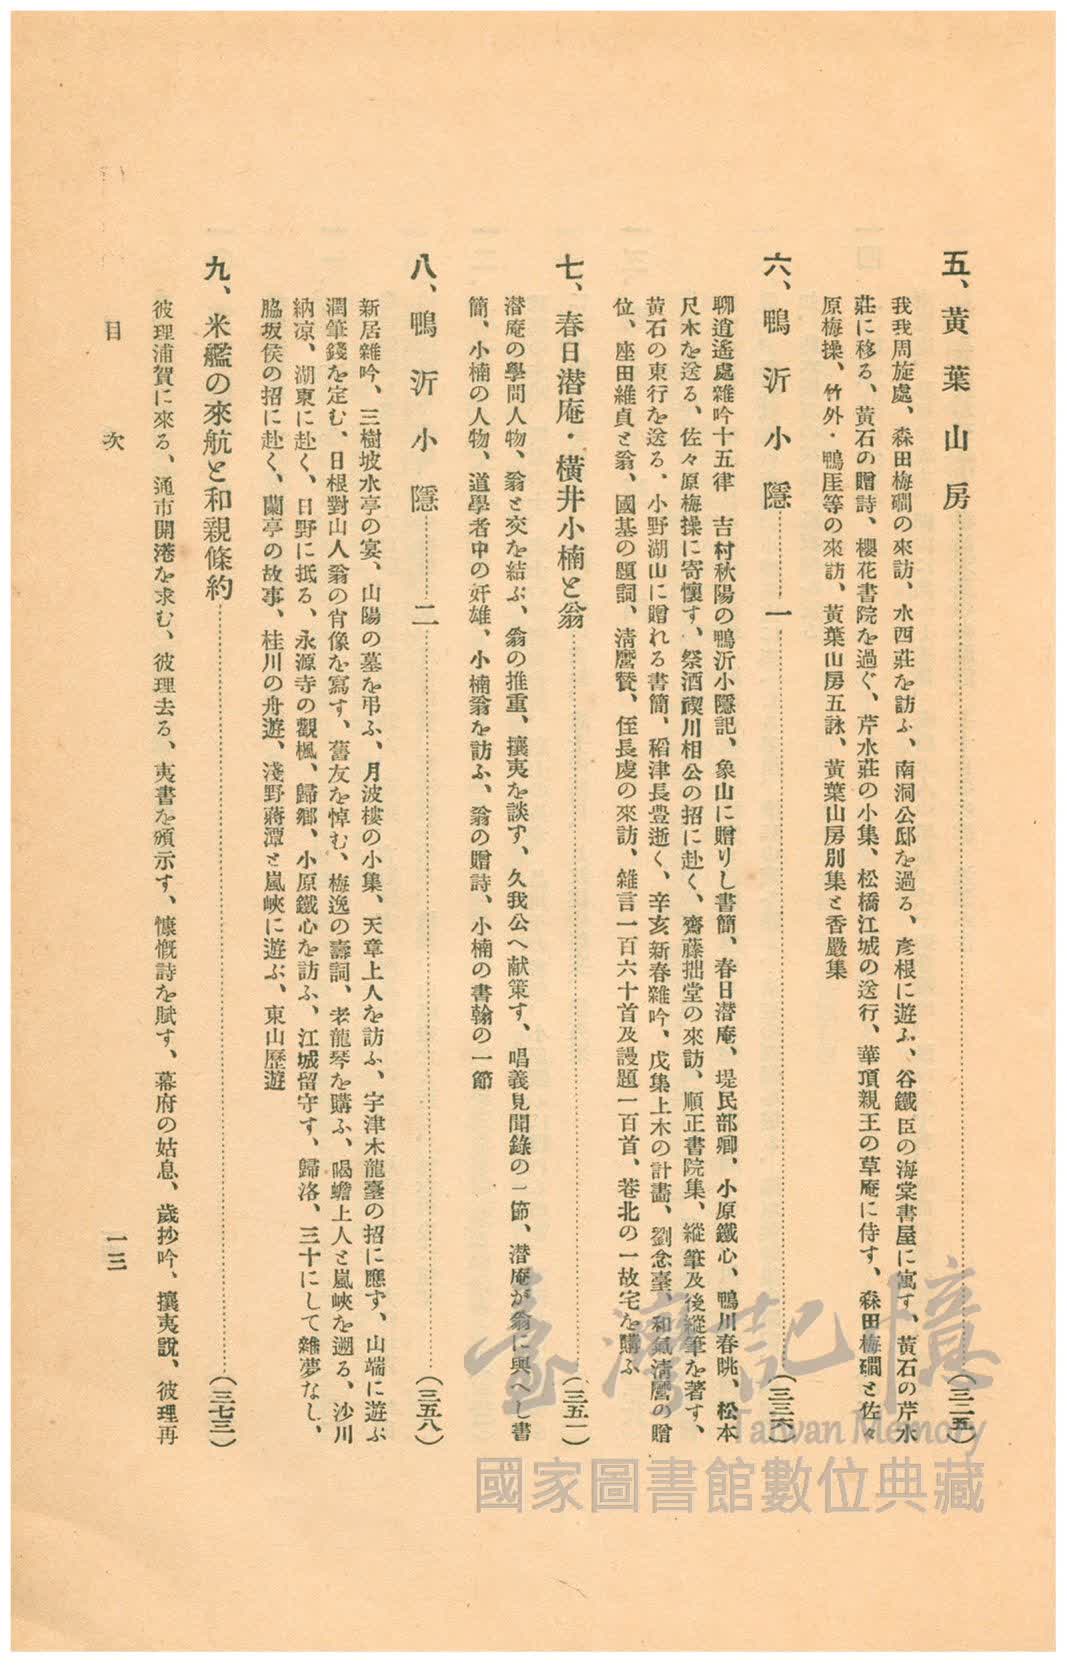 五、黃葉山房……………(三二五)
我我周旋處、森田梅磵の來訪、水西莊を訪ふ、南洞公邸を過る、彥根に遊ふ、谷鐵臣の海棠書屋に寓す、黃石の芹水
莊に移る、黃石の贈詩、櫻花書院を過ぐ、芹水莊の小集、松橋江城の送行、華頂親王の草庵に侍す、森田梅磵と佐々
原梅操、竹外・鴨厓等の來訪、黃葉山房五詠、黃葉山房別集と香嚴集
六、鴨沂小隱……一……(三三六)
聊逍遙處雜吟十五律　吉村秋陽の鴨沂小隱記、象山に贈りし書簡、春日潜庵、堤民部卿、小原鐵心、鴨川春眺、松本
尺木を送る、佐々原梅操に寄懷す、祭酒禊川相公の招に赴く、齋藤拙堂の來訪、順正書院集、縱筆及後縱筆を著す、
黃石の東行を送る、小野湖山に贈れる書簡、稻津長豊逝く、辛亥新春雜吟、戊集上木の計畵、劉念臺、和氣淸麿の贈
位、座田維貞と翁、國基の題詞、淸麿贊、侄長虔の來訪、雜言一百六十首及謾題一百首、巷北の一故宅を購ふ
七、春日潜庵・橫井小楠と翁……………(三五一)
潜庵の學問人物、翁と交を結ぶ、翁の推重、攘夷を談す、久我公へ献策す、唱義見聞錄の一節、潜庵が翁に與へし書
簡、小楠の人物、道學者中の奸雄、小楠翁を訪ふ、翁の贈詩、小楠の書翰の一節
八、鴨沂小隱……二……(三五八)
新居雜吟、三樹坡水亭の宴、山陽の墓を弔ふ、月波樓の小集、天章上人を訪ふ、宇津木龍臺の招に應す、山端に遊ぶ
潤筆錢を定む、日根對山人翁の肖像を寫す、舊友を悼む、梅逸の壽詞、老龍琴を購ふ、喝蟾上人と嵐峽を遡る、沙川
納凉、湖東に赴く、日野に抵る、永源寺の觀楓、歸鄕、小原鐵心を訪ふ、江城留守す、歸洛、三十にして雜夢なし、
脇坂侯の招に赴く、蘭亭の故事、桂川の舟遊、淺野蔣潭と嵐峽に遊ぶ、東山歷遊
九、米艦の來航と和親條約……………(三七三)
彼理浦賀に來る、通市開港を求む、彼理去る、夷書を頒示す、慷慨詩を賦す、幕府の姑息、歲抄吟、攘夷說、彼理再
目次　一三
臺灣記憶
Taiwan Memory
國家圖書館數位典藏